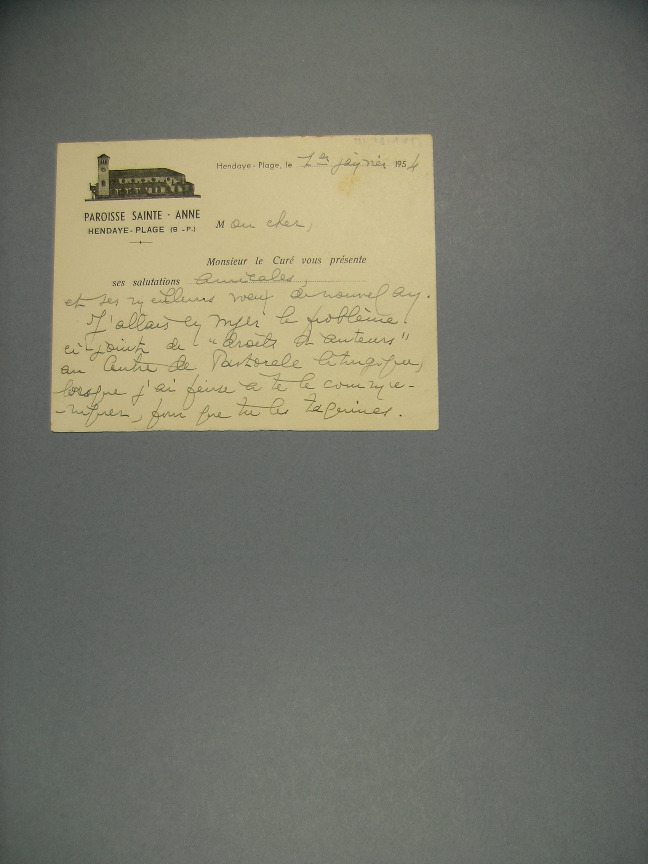 Hendaye - Plage, le 1er janvier 1954
PAROISSE SAINTE - ANNE
HENDAYE - PLAGE (B.-P.)
Mon cher,
Monsieur le Curé vous présente
ses salutations amicales,
et ses meilleurs voeux de nouvel an.
J'allais le problème
ci-joint de "droits d'auteurs"
au Centre de Pastorale liturgique,
lorsque j'ai pensé à te le commu-
-niquer, pour que tu les examines.